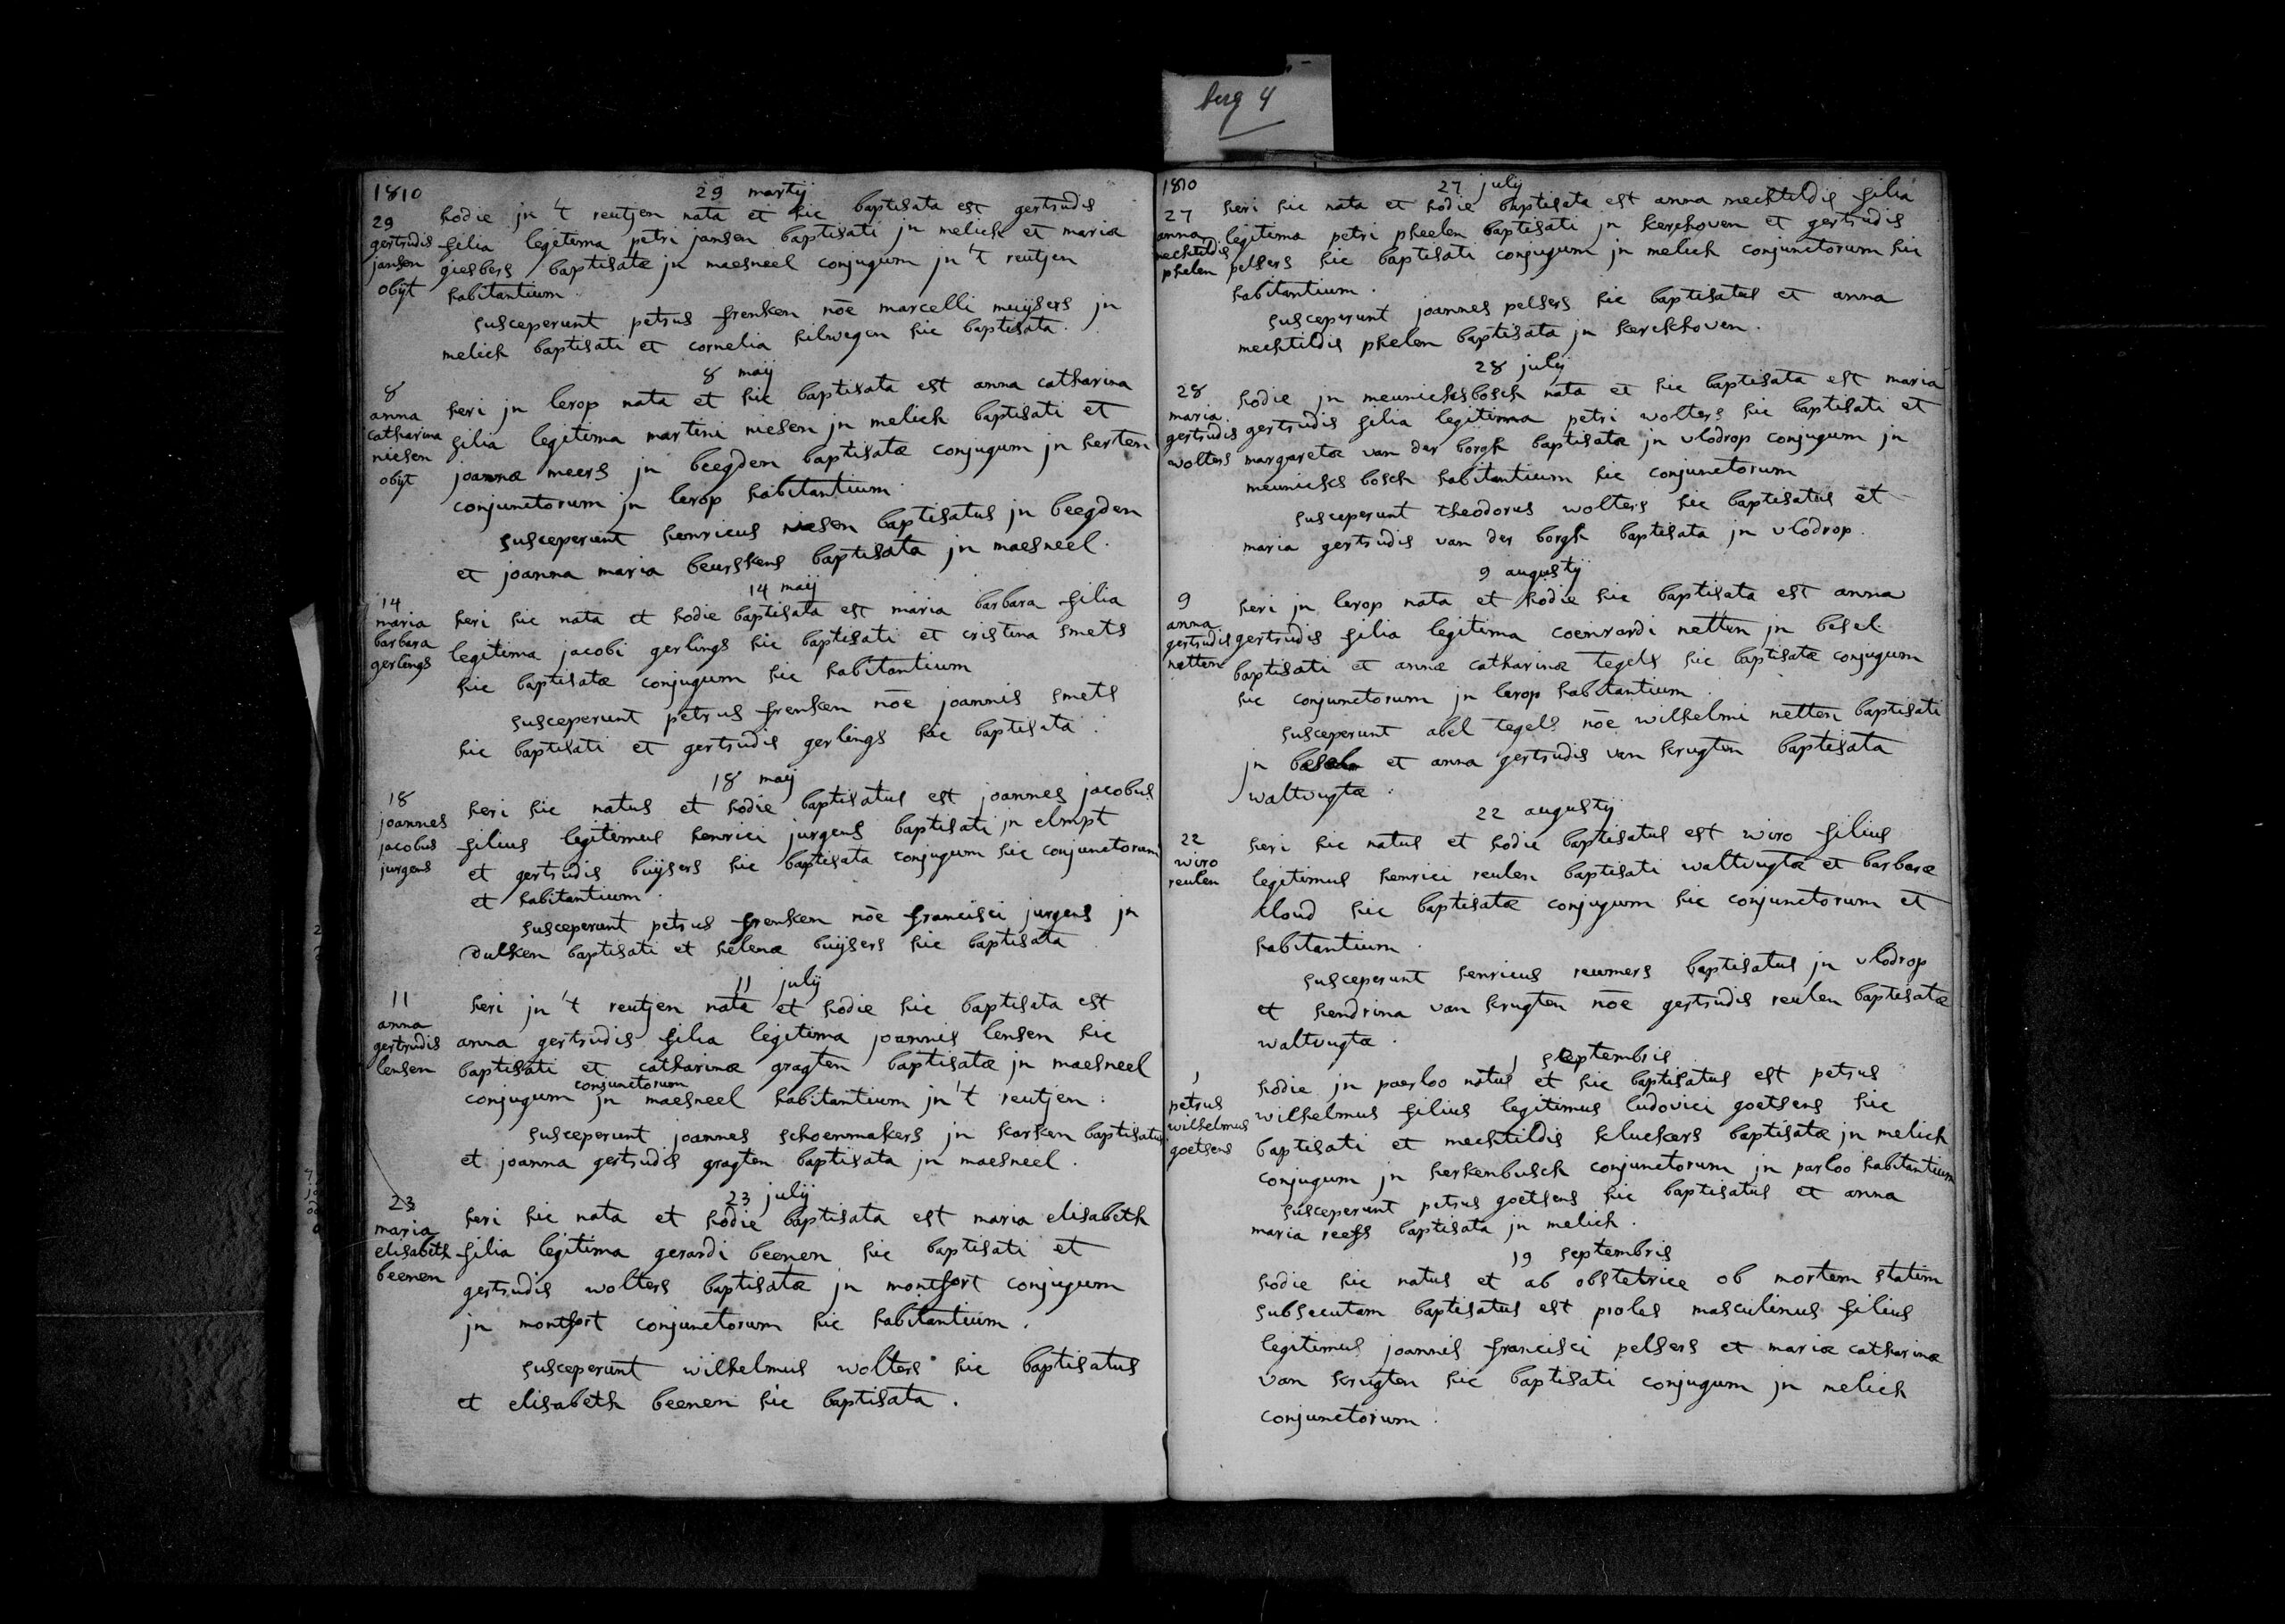 berg 4
1810
29 martij
29
gertrudis
jansen
obijt
hodie jn 't reutjen nata et hic baptisata est gertrudis
filia legitima petri jansen baptisati jn melick et maria
giesbers baptisatæ jn maesneel conjugum jn 't reutjen
habitantium.
susceperunt petrus frenken nõe marcelli muijsers jn
melick baptisati et cornelia hilwegen hic baptisata.
8 maij
8
anna
catharina
niesen
obijt
heri jn lerop nata et hic baptisata est anna catharina
filia legitima martini niesen jn melick baptisati et
joannæ meers jn beegden baptisatæ conjugum jn herten
conjunctorum jn lerop habitantium.
susceperunt henricus niesen baptisatus jn beegden
et joanna maria beurskens baptisata jn maesneel.
14 maij
14
maria
barbara
gerlings
heri hic nata et hodie baptisata est maria barbara filia
legitima jacobi gerlings hic baptisati et cristina smets
hic baptisatæ conjugum hic habitantium
susceperunt petrus frenken nõe joannis smets
hic baptisati et gertrudis gerlings hic baptisata.
18 maij
18
joannes
jacobus
jurgens
heri hic natus et hodie baptisatus est joannes jacobus
filius legitimus henrici jurgens baptisati jn elmpt
et gertrudis buijsers hic baptisata conjugum hic conjunctorum
et habitantium.
susceperunt petrus frenken nõe francisci jurgens jn
dulken baptisati et helena buijsers hic baptisata
11 julij
11
anna
gertrudis
lensen
heri jn 't reutjen nata et hodie hic baptisata est
anna gertrudis filia legitima joannis lensen hic
baptisati et catharinæ gragten baptisatæ jn maesneel
conjunctorum
conjugum jn maesneel habitantium jn 't reutjen.
susceperunt joannes schoenmakers jn karken baptisatus
et joanna gertrudis gragten baptisata jn maesneel.
23 julij
23
maria
elisabeth
beenen
heri hic nata et hodie baptisata est maria elisabeth
filia legitima gerardi beenen hic baptisati et
gertrudis wolters baptisatæ jn montfort conjugum
jn montfort conjunctorum hic habitantium.
susceperunt wilhelmus wolters hic baptisatus
et elisabeth beenen hic baptisata.
1810
27 july
27
anna
mechtildis
phelen
heri hic nata et hodie baptisata est anna mechtildis filia
legitima petri pheelen baptisati jn kerckhoven et gertrudis
pelsers hic baptisati conjugum jn melick conjunctorum hic
habitantium.
susceperunt joannes pelsers hic baptisatus et anna
mechtildis phelen baptisata jn kerckhoven.
28 july
28
maria
gertrudis
wolters
hodie jn meunichsbosch nata et hic baptisata est maria
gertrudis filia legitima petri wolters hic baptisati et
margaretæ van der borgh baptisatæ jn vlodrop conjugum jn
meunichs bosch habitantium hic conjunctorum
susceperunt theodorus wolters hic baptisatus et
maria gertrudis van der borgh baptisata jn vlodrop.
9 augustij
9
anna
gertrudis
netten
heri jn lerop nata et hodie hic baptisata est anna
gertrudis filia legitima coenrardi netten jn besel
baptisati et annæ catharinæ tegels hic baptisatæ conjugum
hic conjunctorum jn lerop habitantium.
susceperunt abel tegels nõe wilhelmi netten baptisati
jn et anna gertrudis van krugten baptisata
waltrugtæ.
22 augustij
22
wiro
reulen
heri hic natus et hodie baptisatus est wiro filius
legitimus henrici reulen baptisati waltrugtæ et barbaræ
cloud hic baptisatæ conjugum hic conjunctorum et
habitantium.
susceperunt henricus reumers baptisatus jn vlodrop
et hendrina van krugten nõe gertrudis reulen baptisatæ
waltrugtæ.
1 septembris
1
petrus
wilhelmus
goetsens
hodie jn paerloo natus et hic baptisatus est petrus
wilhelmus filius legitimus ludovici goetsens hic
baptisati et mechtildis kluckers baptisatæ jn melick
conjugum jn herkenbusch conjunctorum jn parloo habitantium
susceperunt petrus goetsens hic baptisatus et anna
maria reefs baptisata jn melick.
19 septembris
hodie hic natus et ab obstetrice ob mortem statim
subsecutam baptisatus est proles masculinus filius
legitimus joannis francisci pelsers et mariæ catharinæ
van krugten hic baptisati conjugum jn melick
conjunctorum.